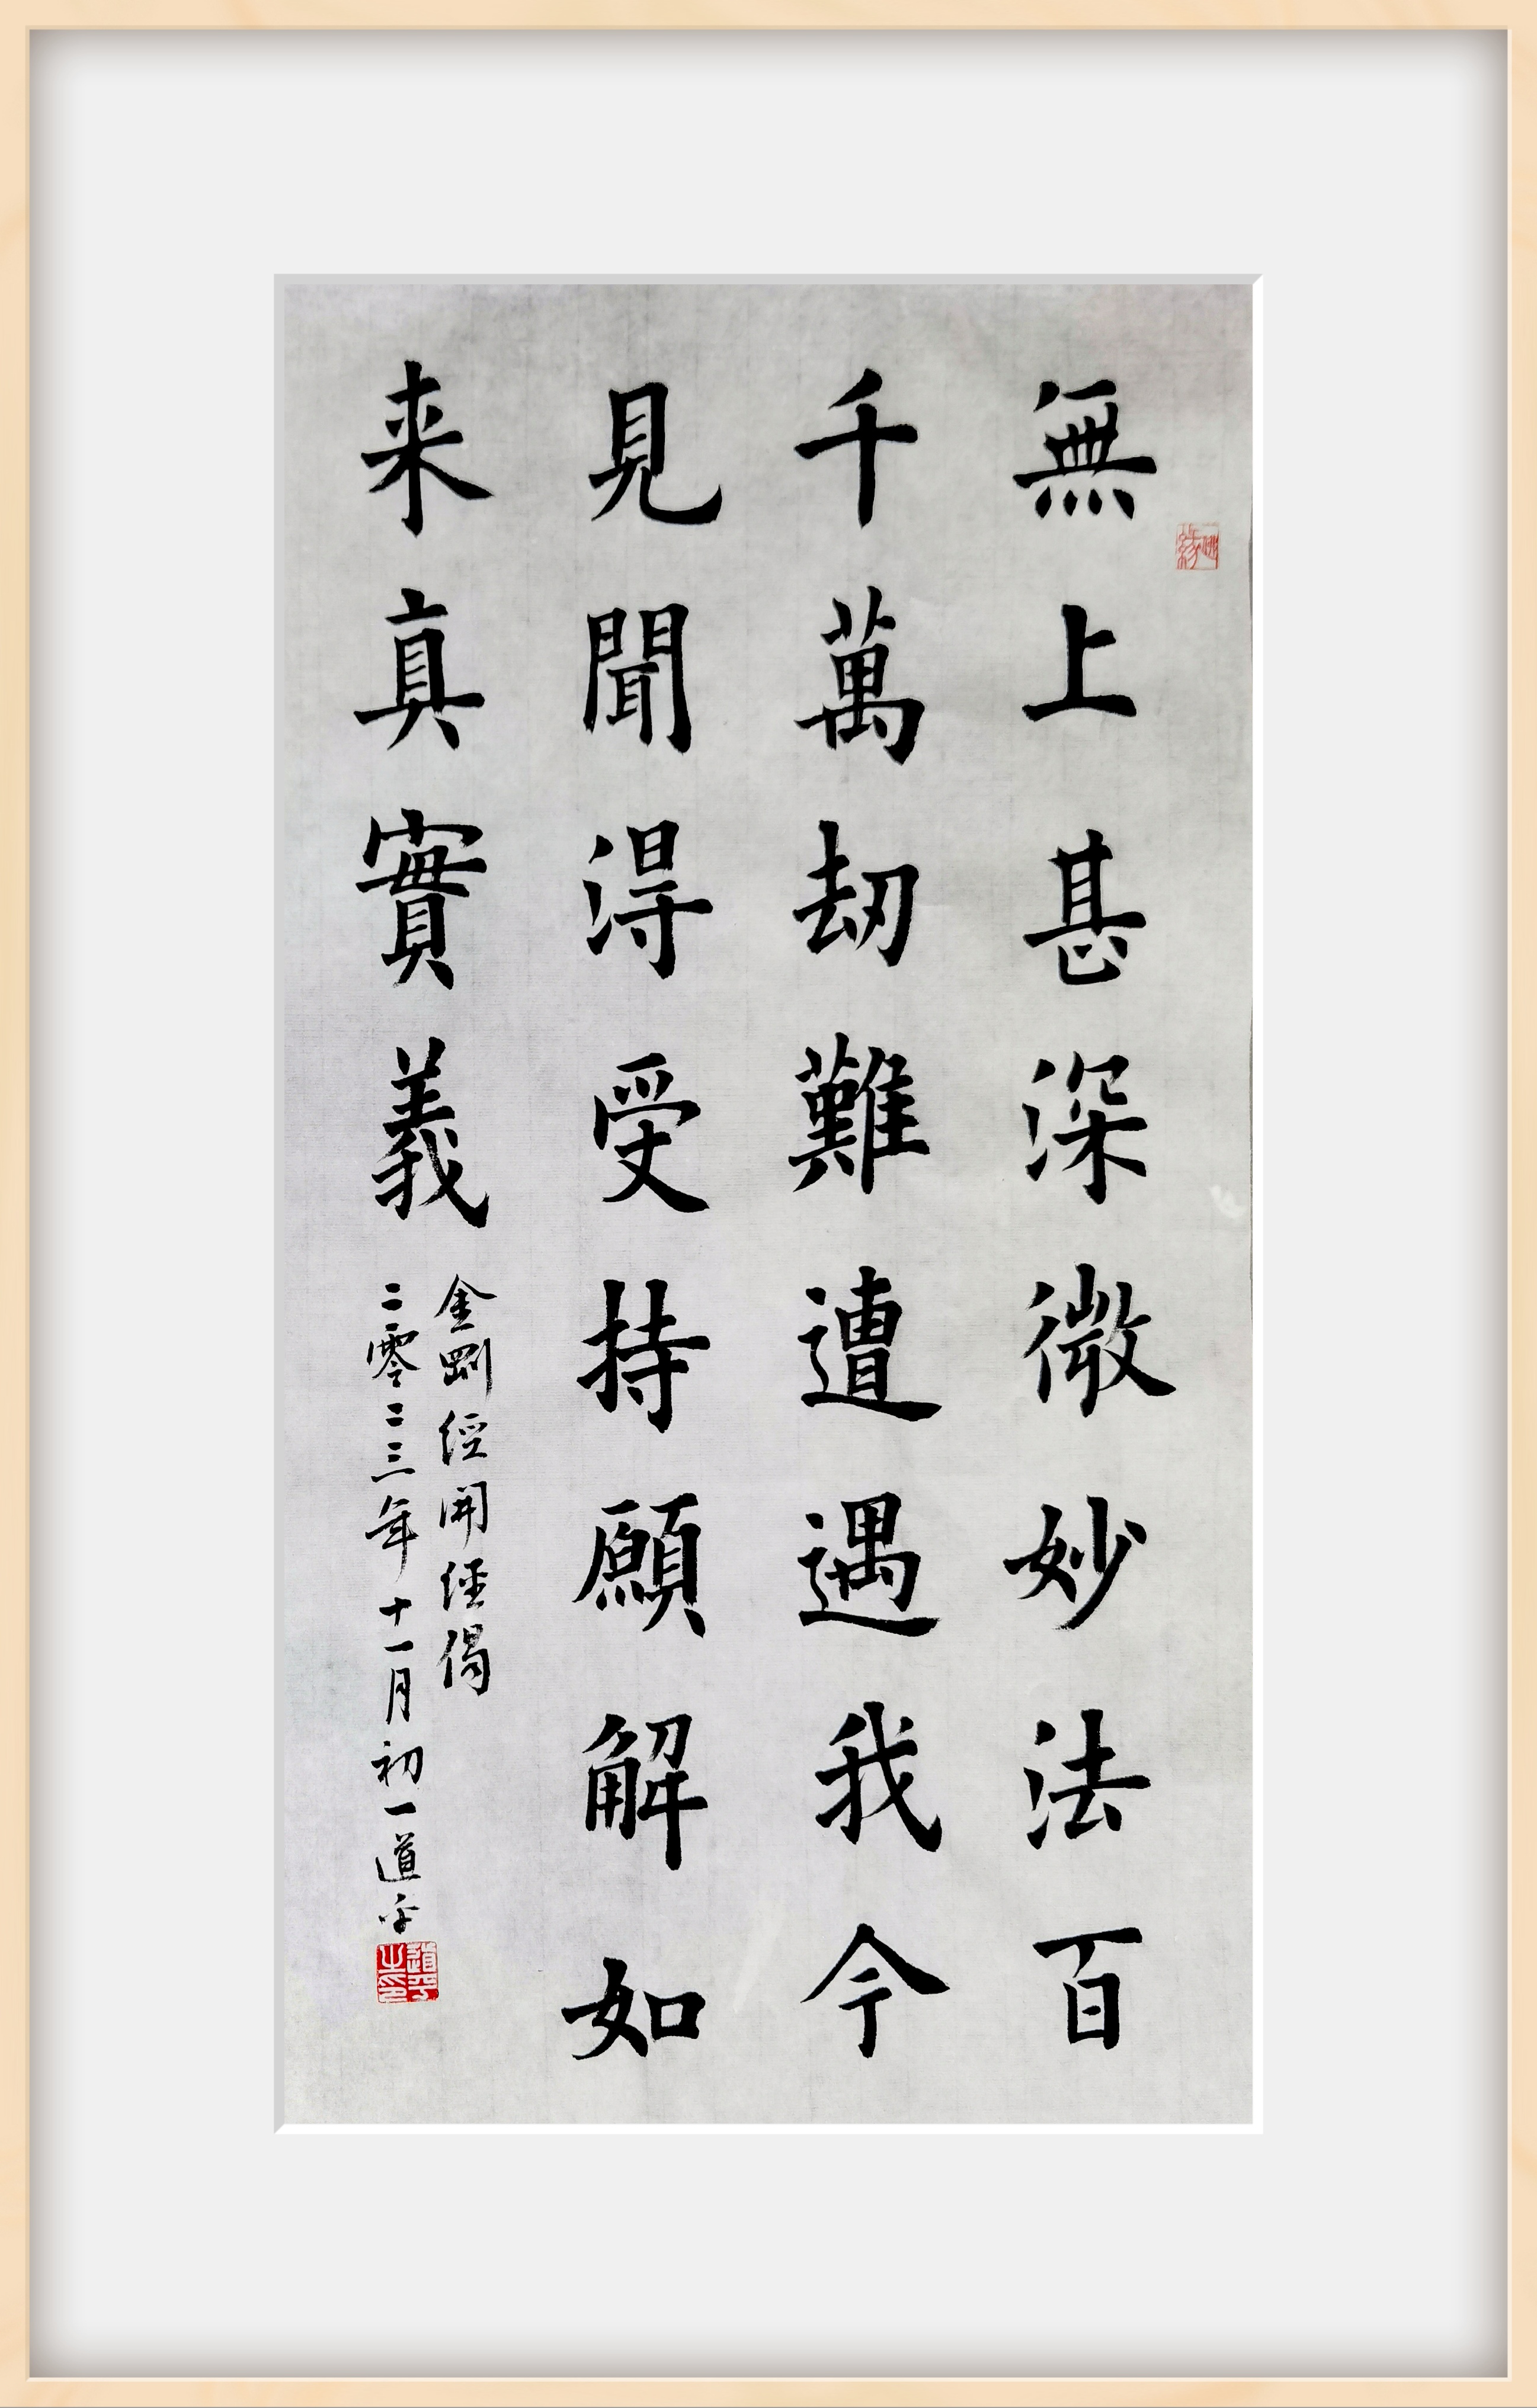 無上甚深微妙法百
千萬劫難遭遇我今
見聞得受持願解如
来真實義
金剛經開經偈
二零二三年十一月初一道平
道平之印